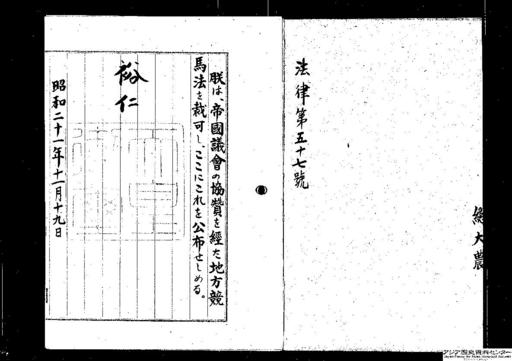 總大農
法律第五十七號
朕は帝國議會の協賛を經た地方競
馬法を裁可し、ここにこれを公布せしめる。
裕仁
昭和二十一年十一月十九日
アジア歴史資料センター